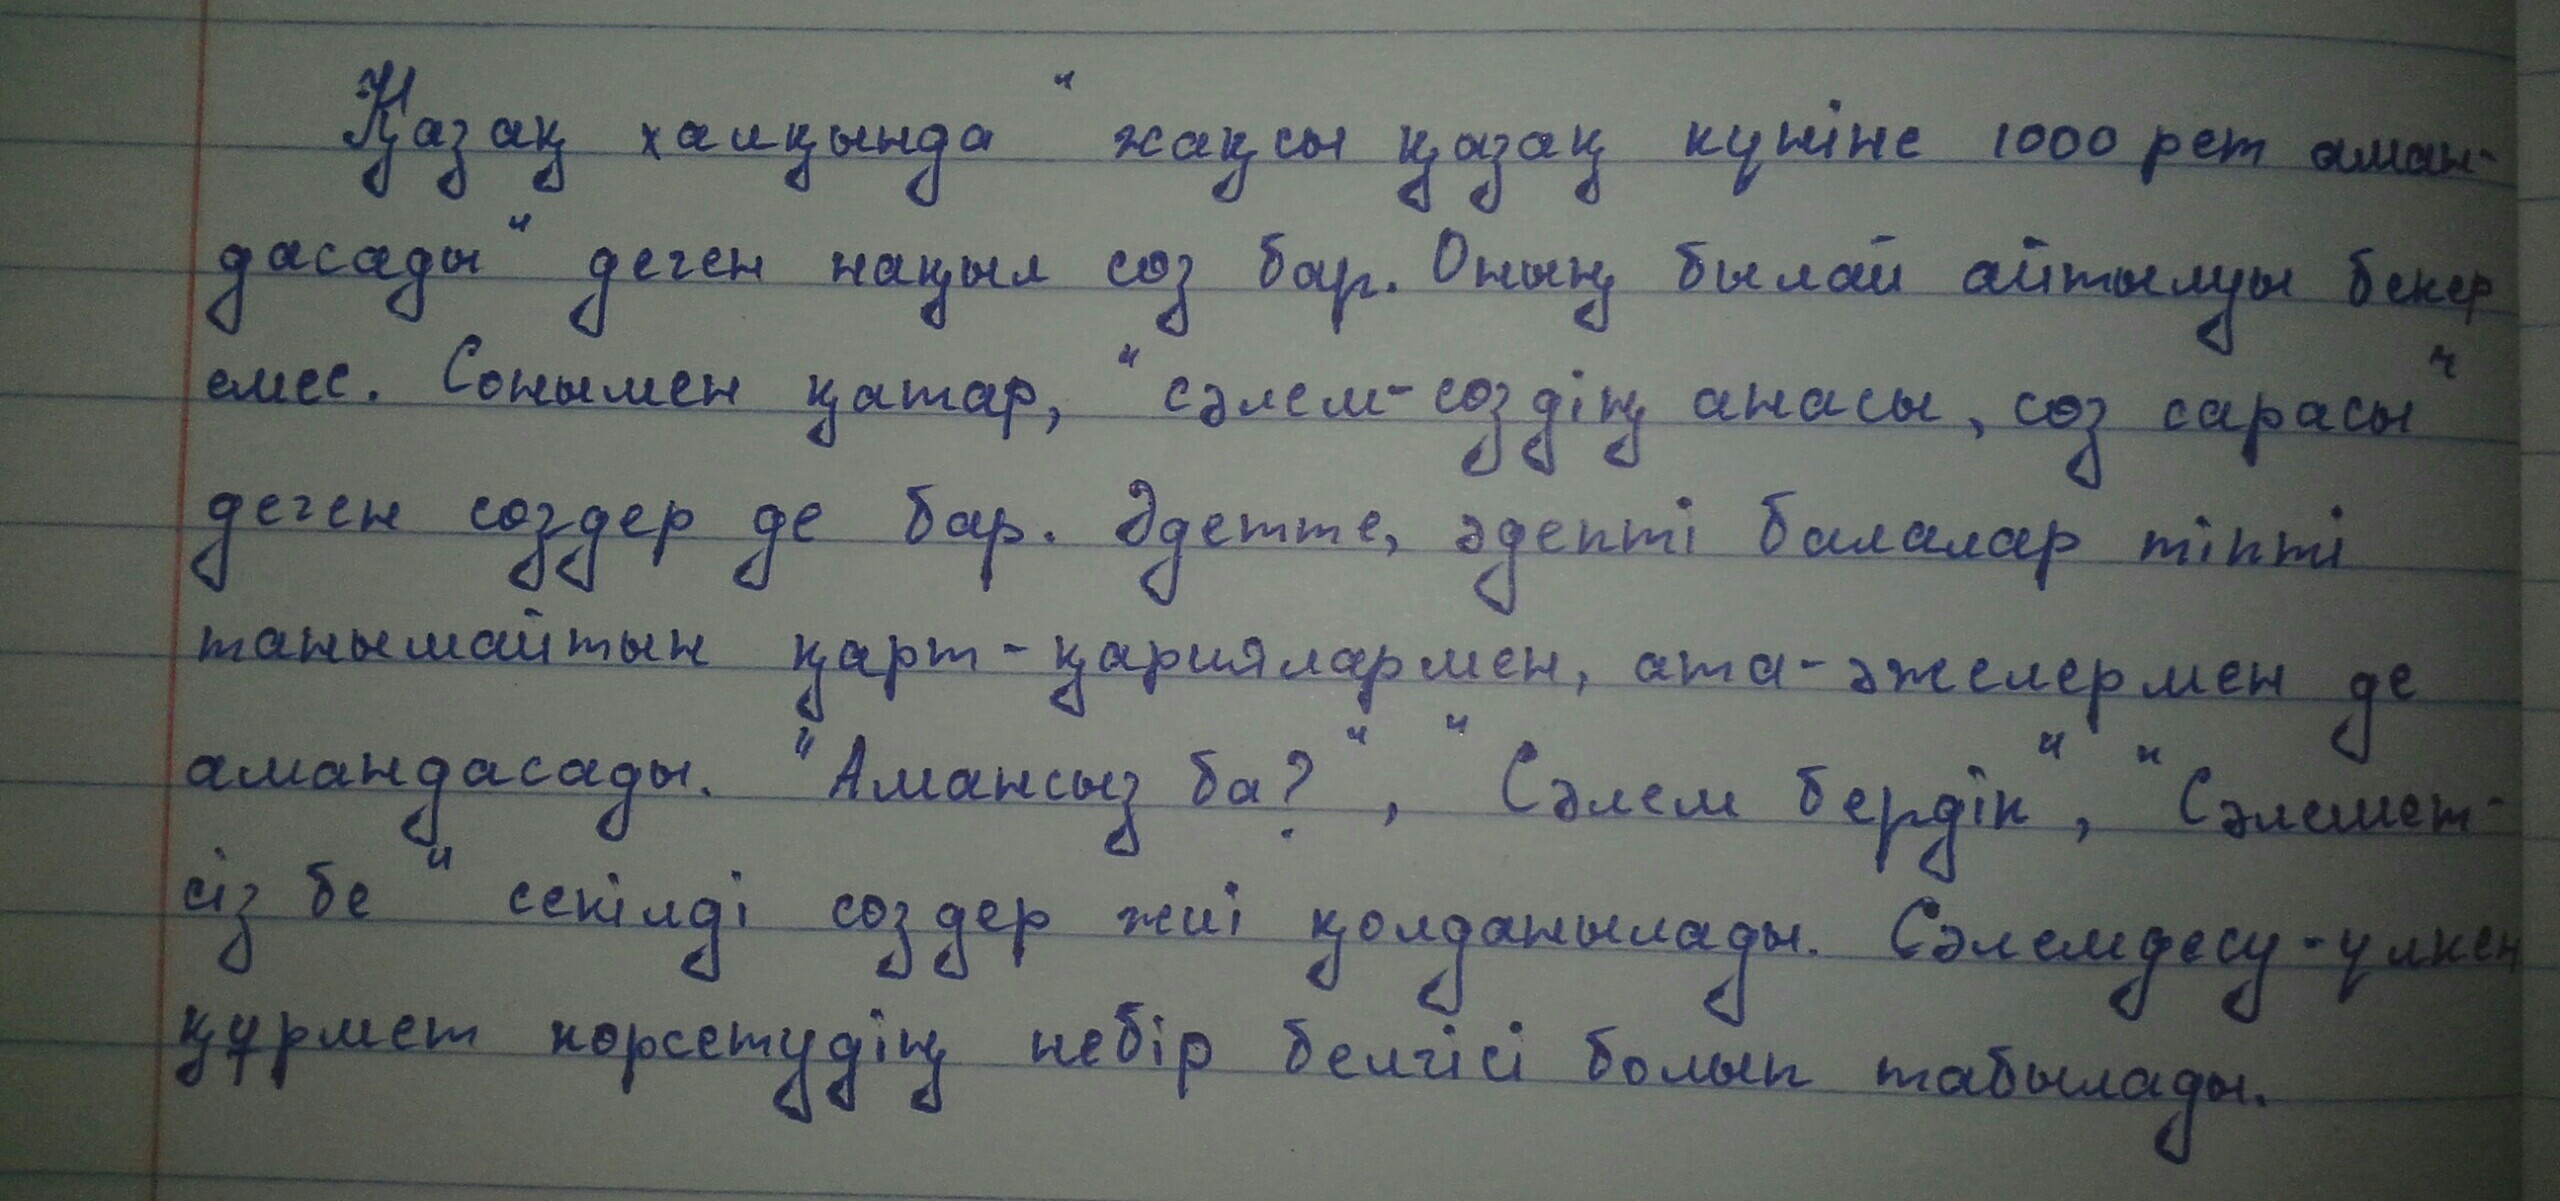 Қазақ халқында "жақсы қазақ күніне 1000 рет аман-
дасады" деген нақыл сөз бар. Оның былай айтылуы бекер
емес. Сонымен қатар, "сәлем-сөздің анасы, сөз сарасы"
деген сөздер де бар. Әдетте, әдепті балалар тіпті
танымайтын қарт-қариялармен, ата-әжелермен де
амандасады. "Амансыз ба?", "Сәлем бердік", "Сәлемет-
сіз бе" секілді сөздер жиі қолданылады. Сәлемдесу-үлкен
құрмет көрсетудің небір белгісі болып табылады.